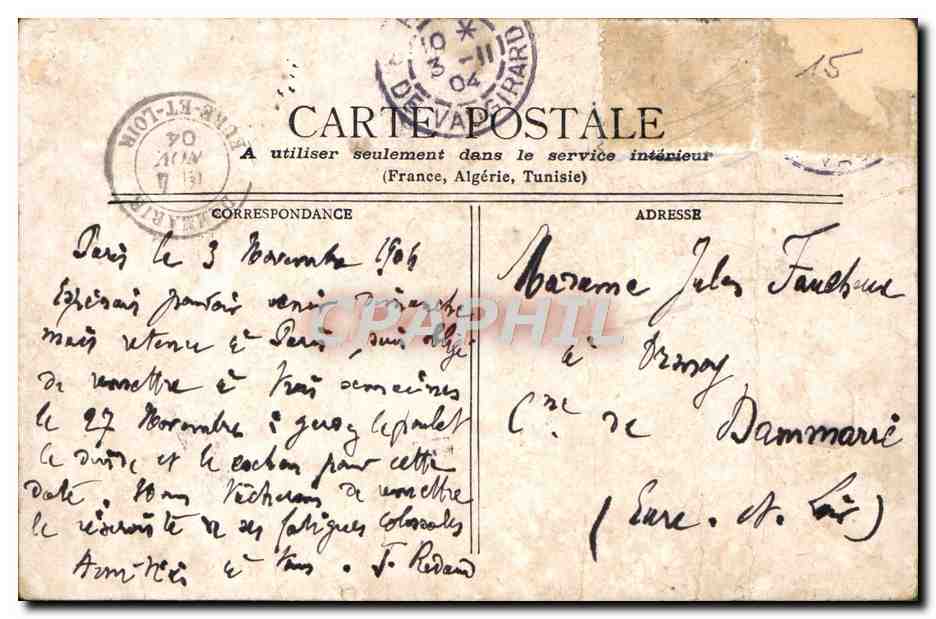 15
10 *
3 -11
04
DE VAUGIRARD
EURE-ET-LOIR
DAMMARIE
4
NOV
04
CARTE POSTALE
A utiliser seulement dans le service intérieur
(France, Algérie, Tunisie)
CORRESPONDANCE
Paris le 3 Novembre 1904
Espérais pouvoir venir Dimanche
mais retenu à Paris, suis obligé
de remettre à trois semaines
le 27 Novembre le poulet
le dinde et le cochon pour cette
date. Nous tâcherons de remettre
le réserviste de ses fatigues colossales
Amitiés à tous. J. Redaud
ADRESSE
Madame Jules Faucheux
à
Cne. de Dammarie
(Eure. et. Loir)
CPAPHIL